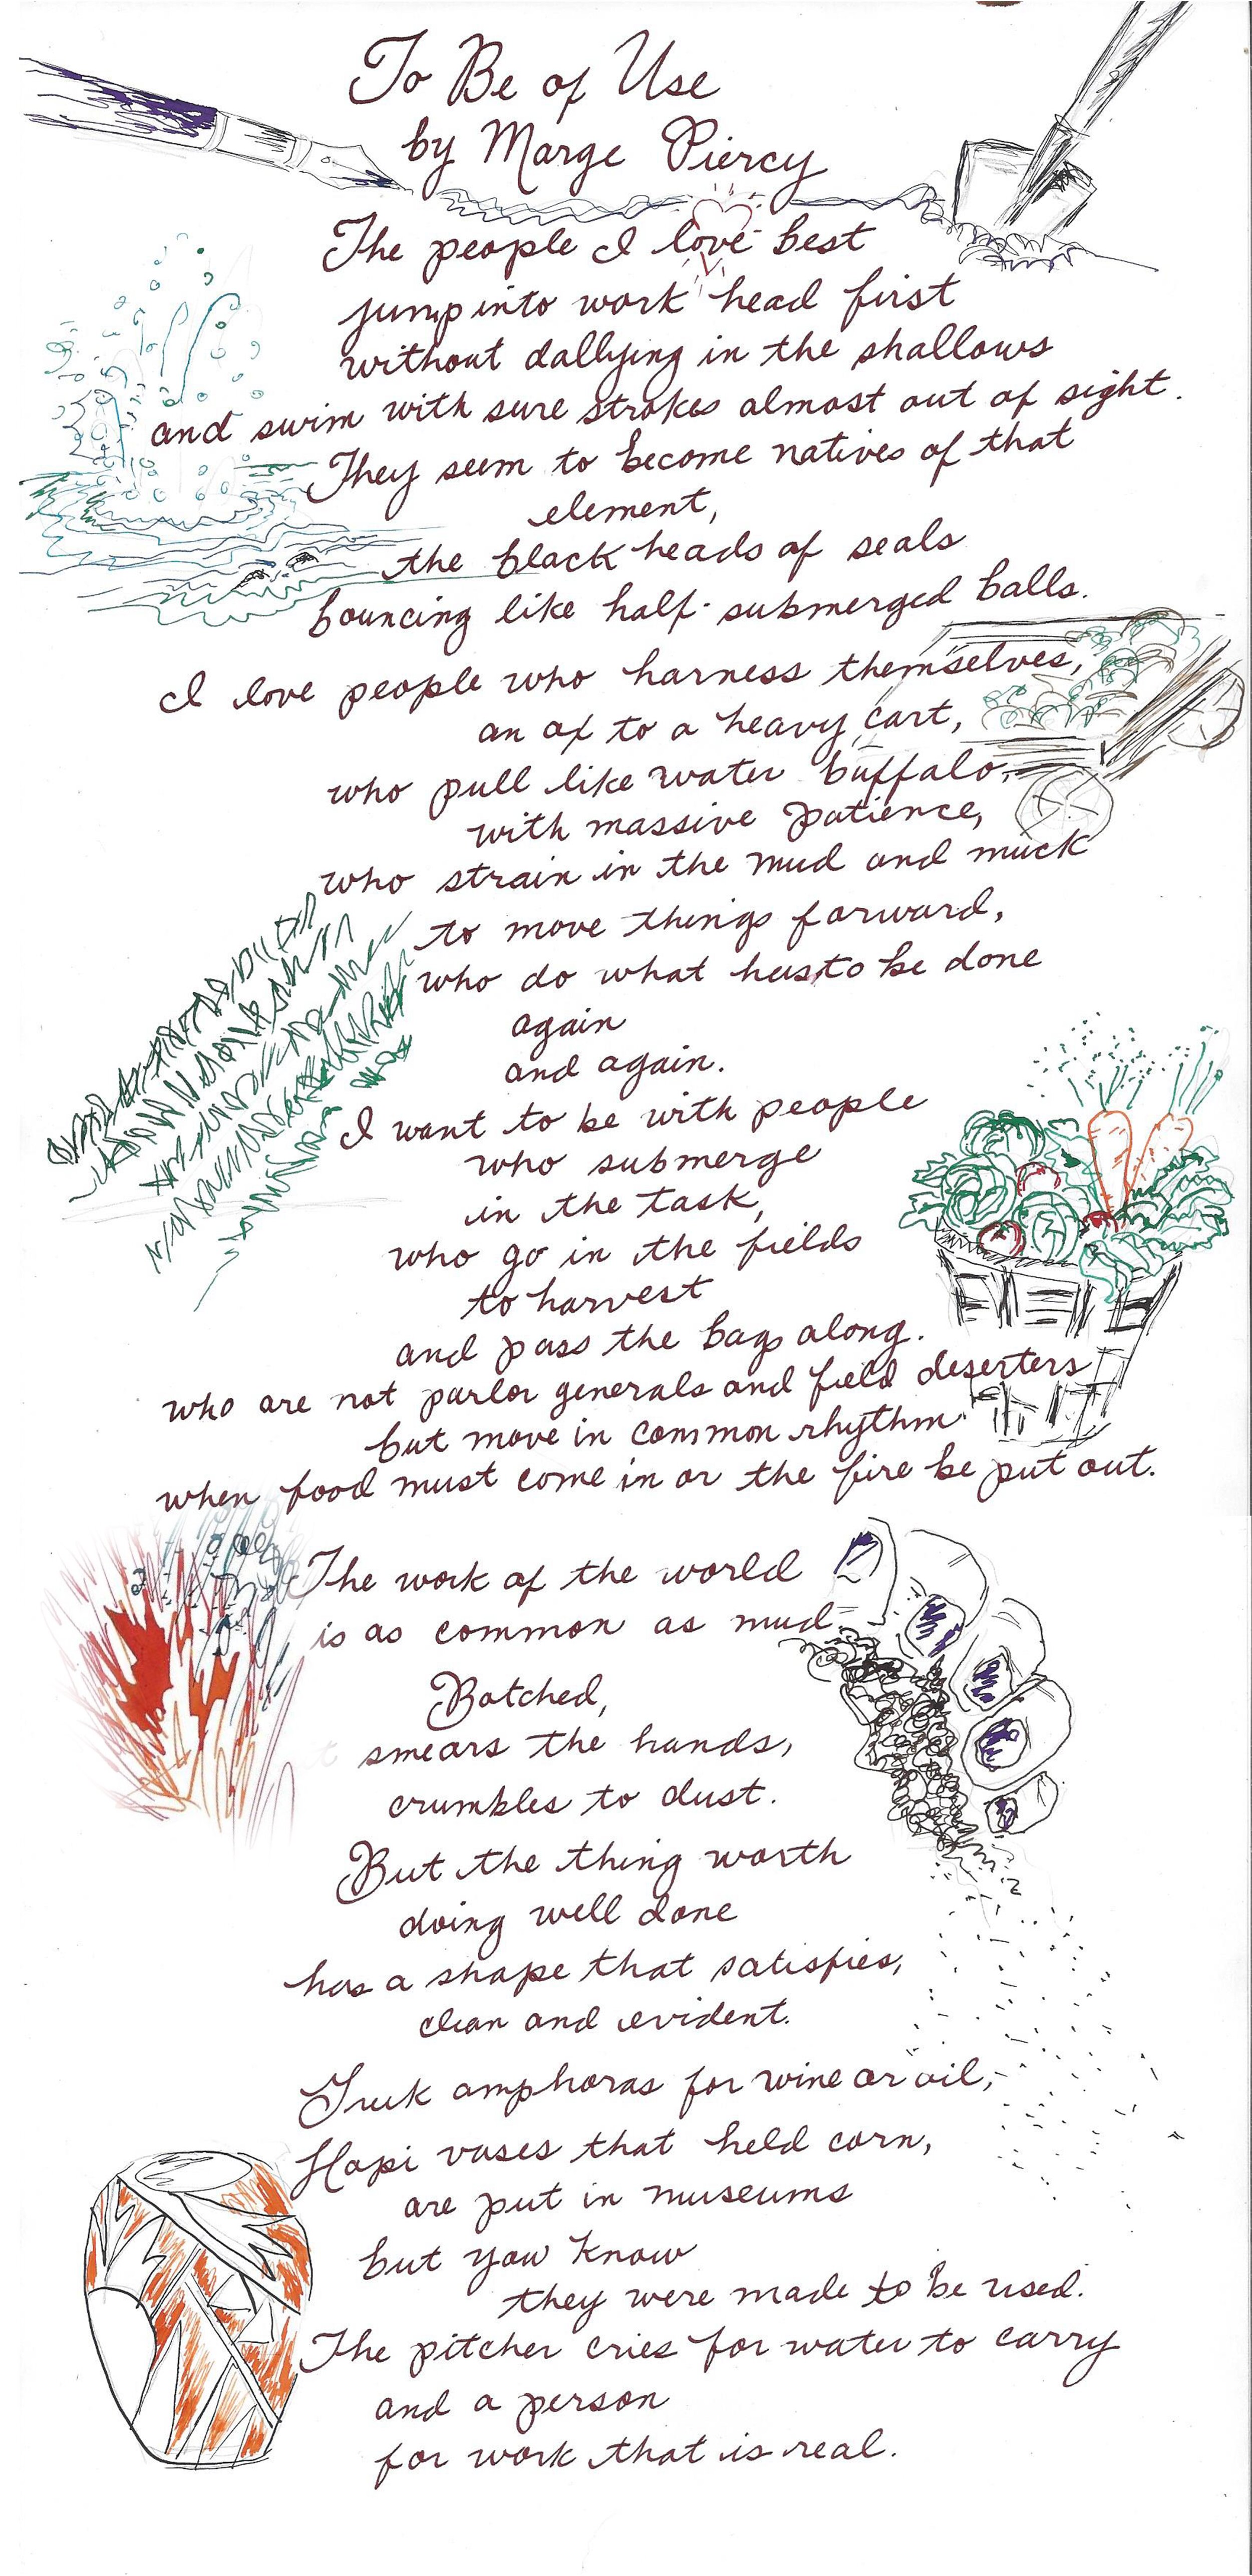 To Be of Use
by Marge Piercy
The people I love best
jump into work head first
without dallying in the shallows
and swim with sure strokes almost out of sight.
They seem to become natives of that
element,
the black heads of seals
bouncing like half-submerged balls.
I love people who harness themselves,
an ox to a heavy cart,
who pull like water buffalo,
with massive patience,
who strain in the mud and muck
to move things forward,
who do what has to be done
again
and again.
I want to be with people
who submerge
in the task,
who go in the fields
to harvest
and pass the bags along.
who are not parlor generals and field deserters
but move in common rhythm
when food must come in or the fire be put out.
The work of the world
is as common as mud
Botched,
smears the hands,
crumbles to dust.
But the thing worth
doing well done
has a shape that satisfies,
clean and evident.
Greek amphoras for wine or oil,
Hopi vases that held corn,
are put in museums
but you know
they were made to be used.
The pitcher cries for water to carry
and a person
for work that is real.